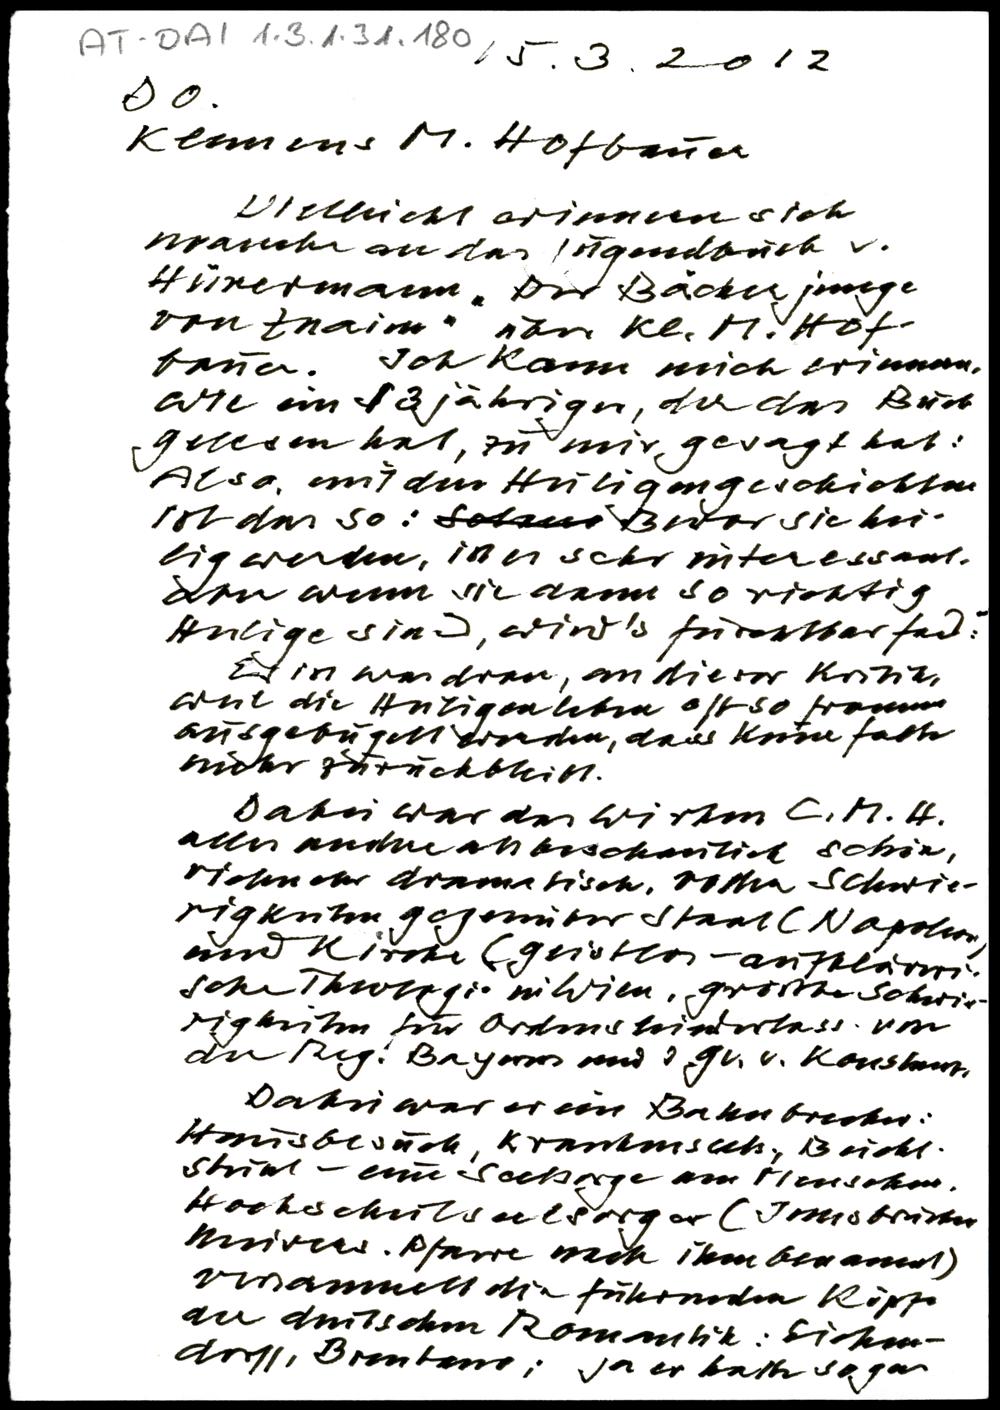 AT-DAI 1.3.1.31.180
15.3.2012
DO.
Klemens M. Hofbauer
Vielleicht erinnern sich
manche an das Jugendbuch v.
Hünermann „Der Bäckerjunge
von Znaim" über Kl. M. Hof-
bauer. Ich kann mich erinnern,
wie ein 13jähriger, der das Buch
gelesen hat, zu mir gesagt hat:
Also, mit den Heiligengeschichten
ist das so: Bevor sie hei-
lig werden, ist es sehr interessant.
Aber wenn sie dann so richtig
Heilige sind, wird's furchtbar fad."
Es ist was dran, an dieser Kritik,
weil die Heiligenleben oft so fromm
ausgebügelt werden, dass keine Falte
mehr zurückbleibt.
Dabei war das Wirken C. M. H.
alles andre als beschaulich schön,
vielmehr dramatisch, voller Schwie-
rigkeiten gegenüber Staat (Napoleon)
und Kirche (geistlos-aufkläreri-
sche Theologie in Wien, größte Schwie-
rigkeiten für Ordensniederlass. von
der Reg. Bayerns und v. Konstanz.
Dabei war er ein Bahnbrecher:
Hausbesuch, Krankenseels., Beicht-
stuhl - eine Seelsorge am Menschen.
Hochschulseelsorger (Innsbrucker
Univers. Pfarre nach ihm benannt)
versammelt die führenden Köpfe
der deutschen Romantik: Eichen-
dorff, Brentano; ja er hatte sogar